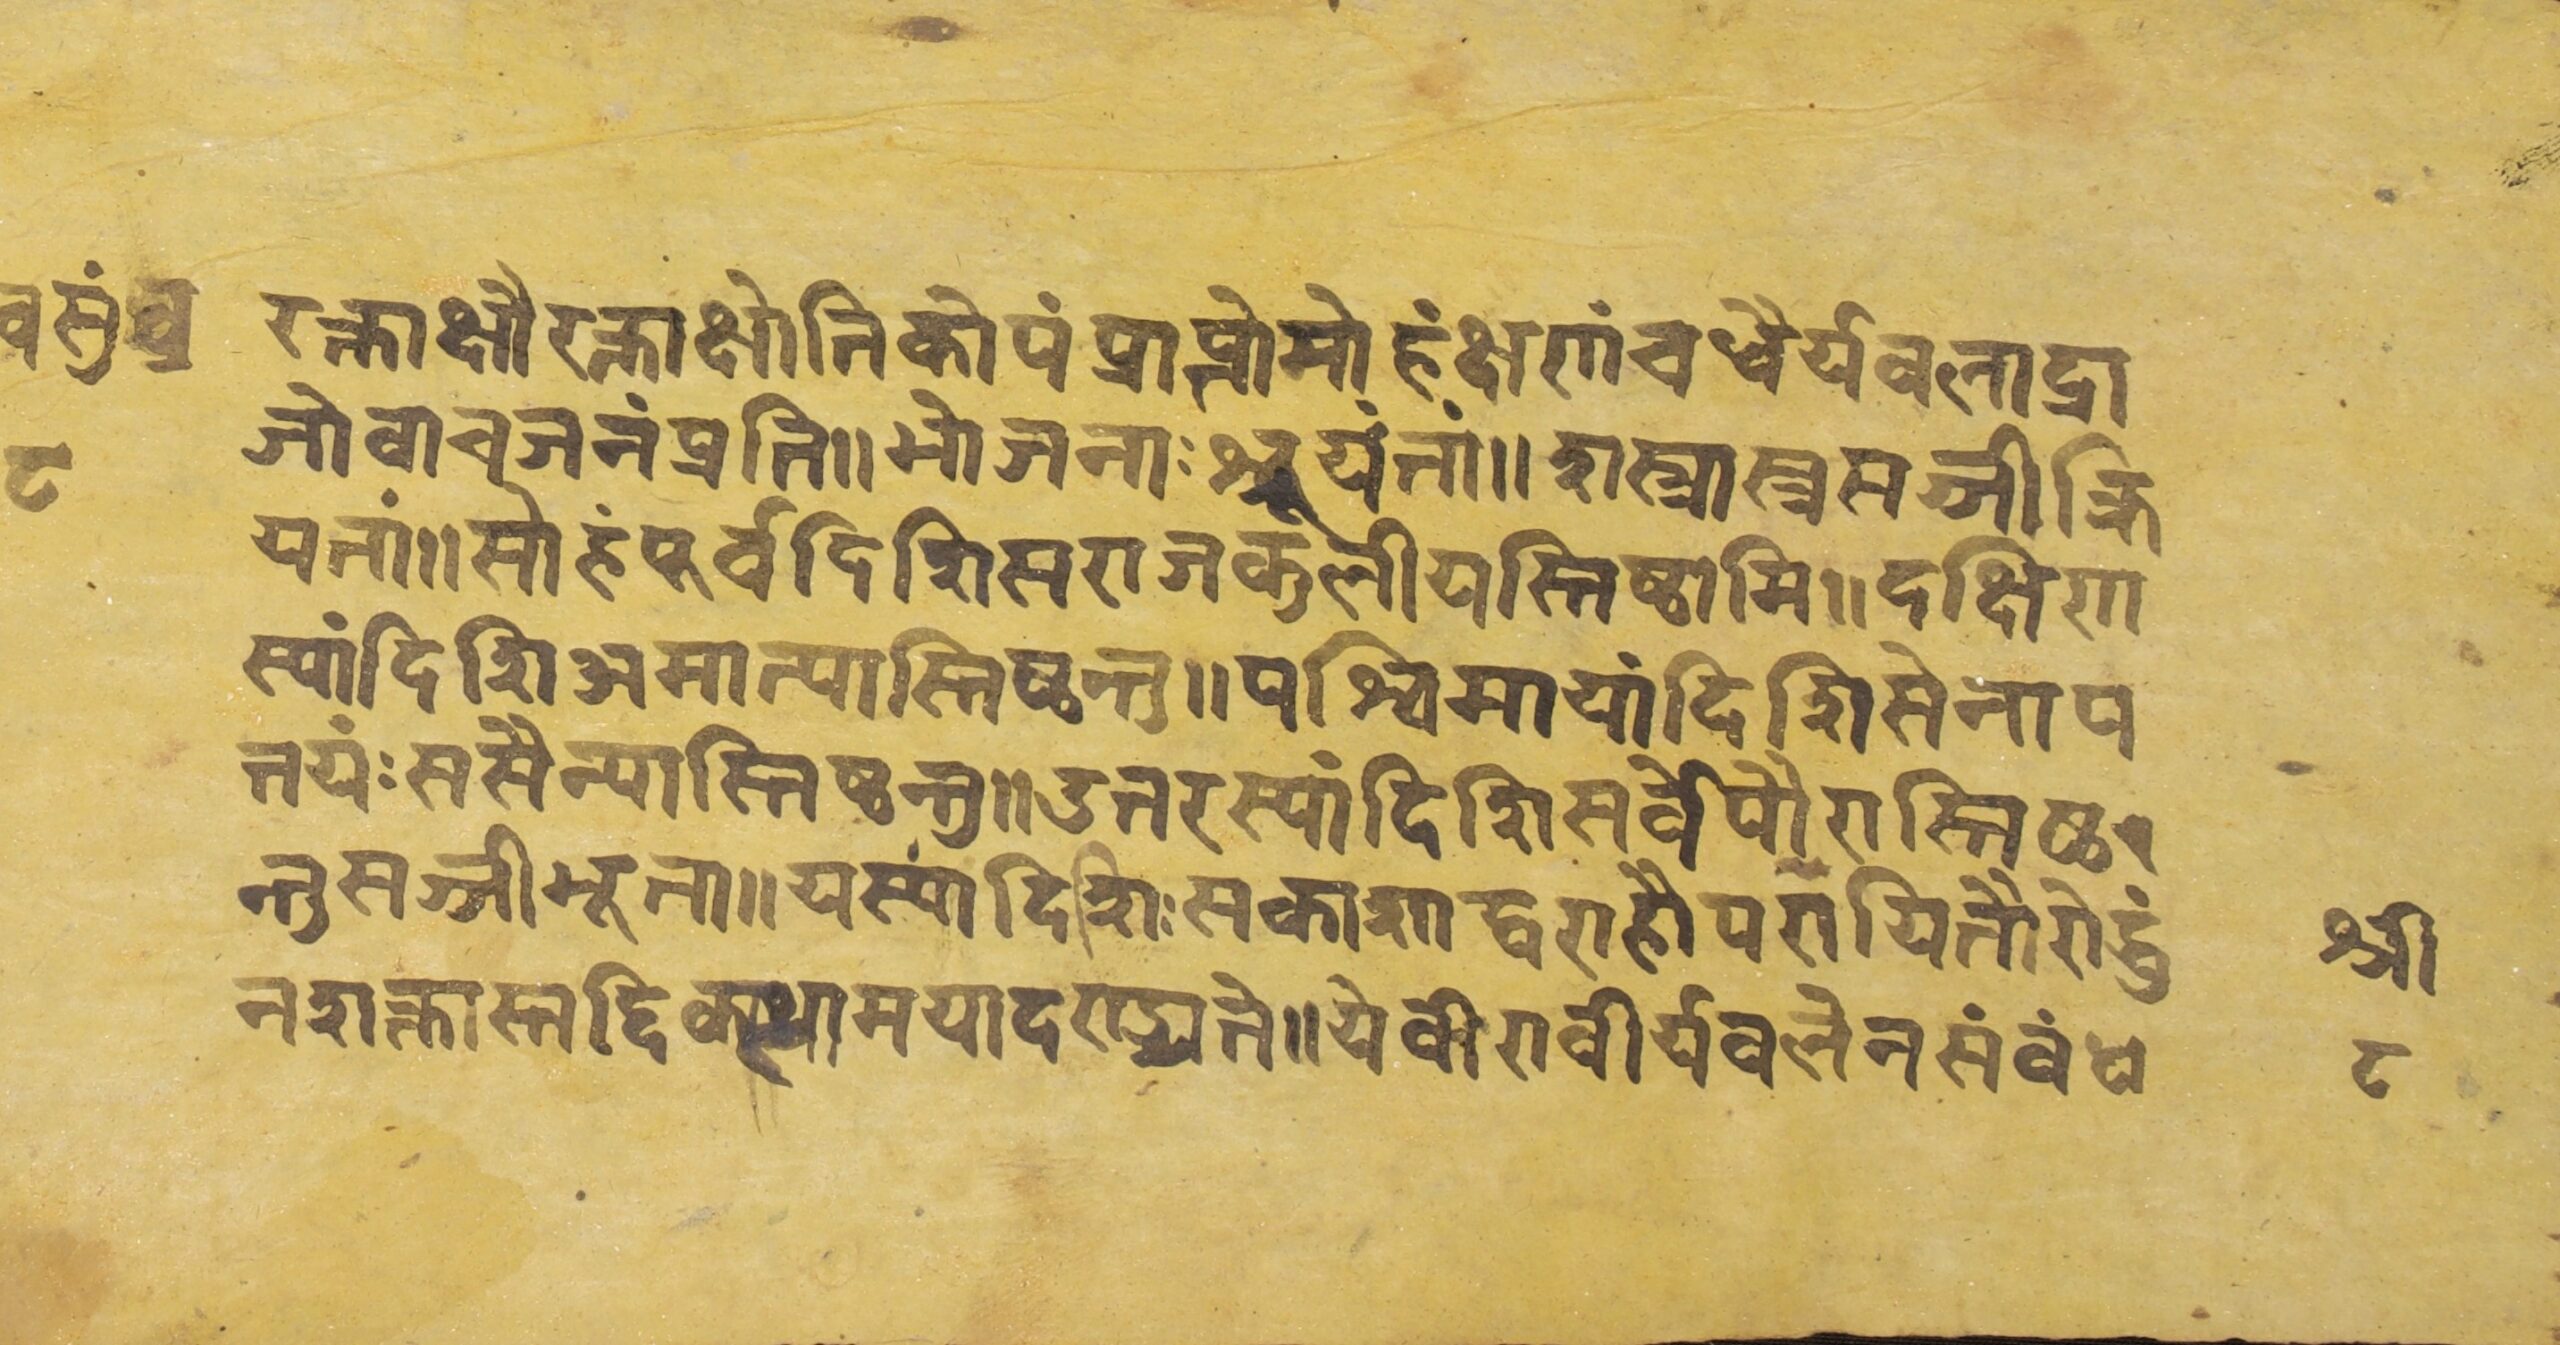 वसुंव
८
रक्ताक्षौरक्ताक्षोतिकोपं प्राप्तोमोहंक्षणंचधैर्यवलाद्रा
जोवाचजनंप्रति॥भोजनाःश्रूयंतां॥शस्त्रास्त्रसज्जीक्रि
यतां॥सोहंपूर्वदिशिसराजकुलीयस्तिष्ठामि॥दक्षिणा
स्यांदिशिअमात्यास्तिष्ठन्तु॥पश्चिमायांदिशिसेनाप
तयंःससैन्यास्तिष्ठन्तु॥उत्तरस्यांदिशिसर्वेपौरास्तिष्ठ
न्तुसज्जीभूता॥यस्यांदिशिःसकाशाद्वराहौपरायितौरोद्धुं
नशक्तास्तद्दिक्थामयादण्ड्यते॥येवीरावीर्यवलेनसंवंध
श्री
८